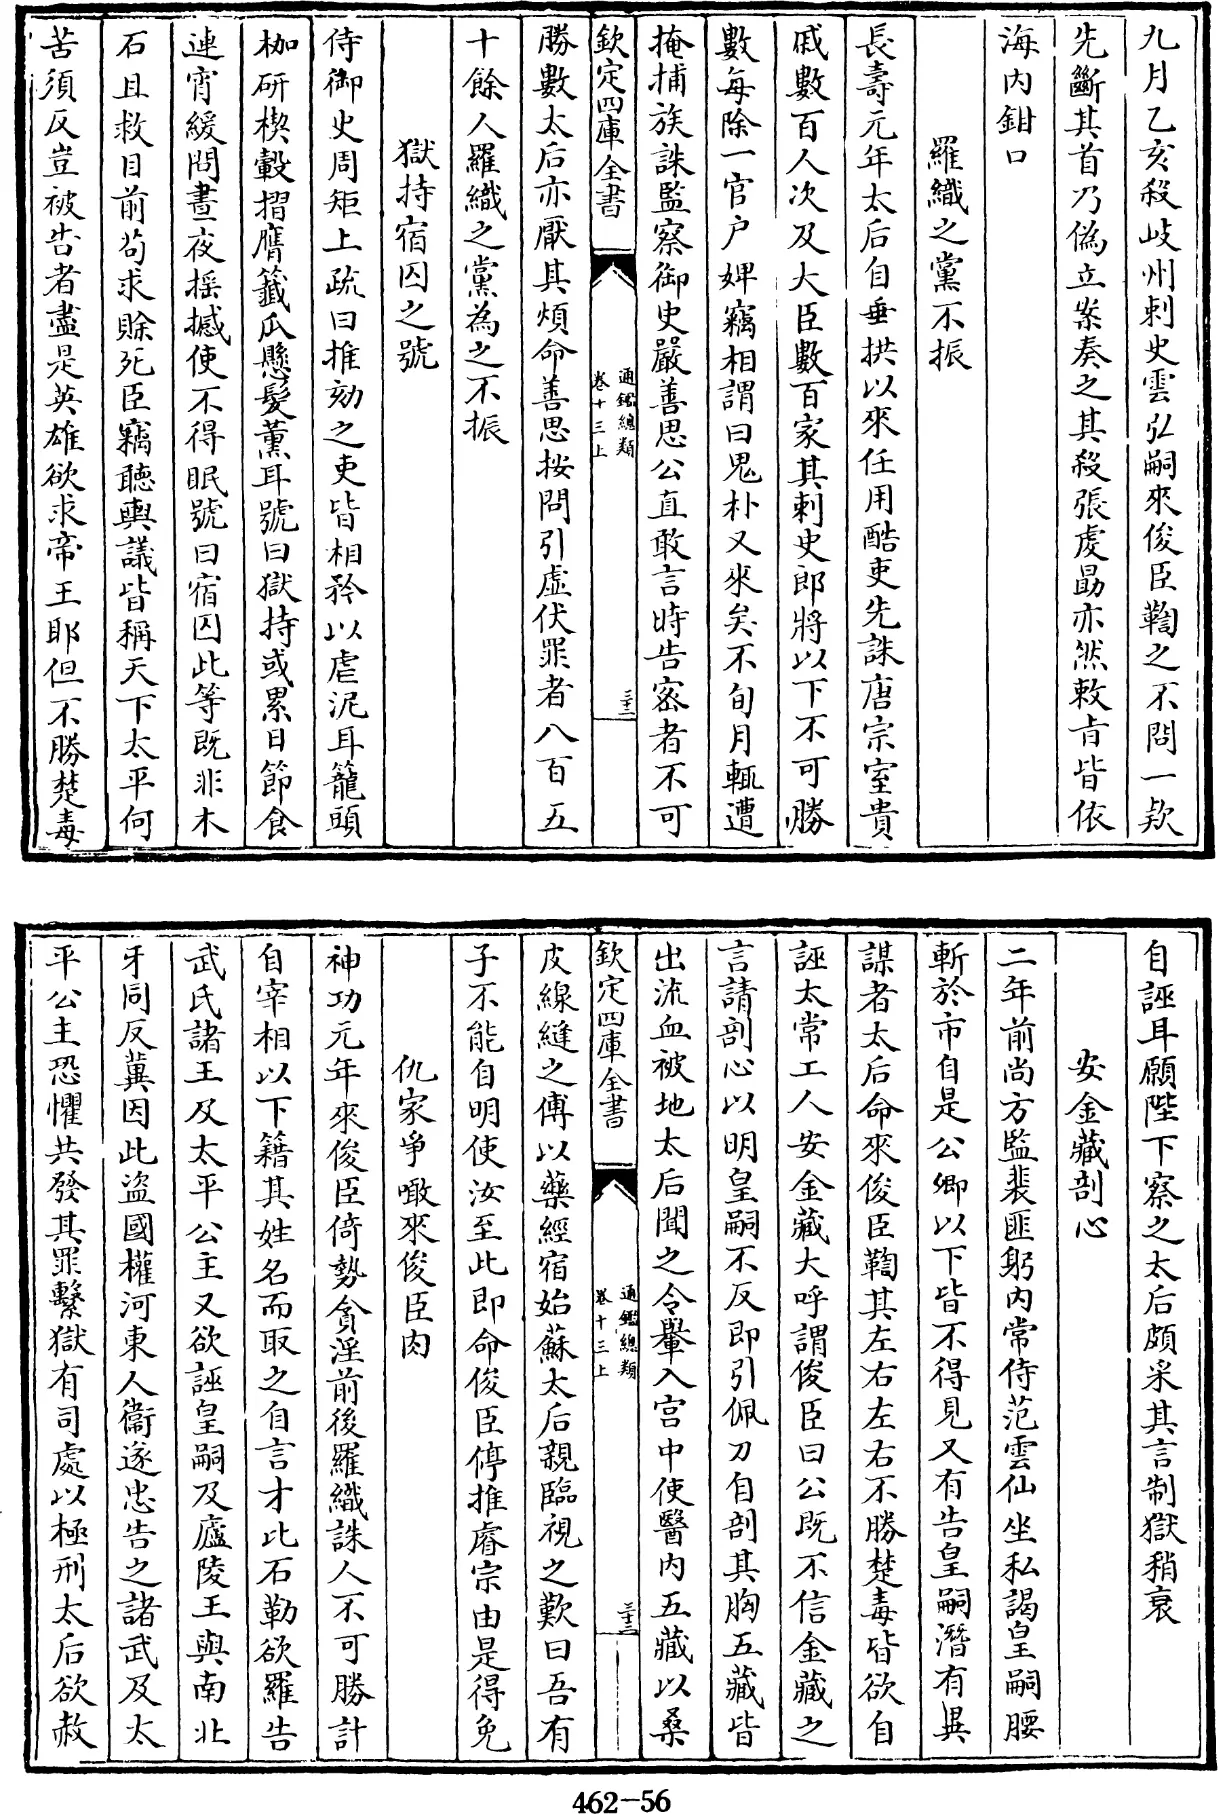 九月乙亥殺岐州刺史雲弘嗣來俊臣鞫之不問一款
先斷其首乃偽立案奏之其殺張虔勗亦然敕旨皆依
海内鉗口
羅織之黨不振
長壽元年太后自垂拱以來任用酷吏先誅唐宗室貴
戚數百人次及大臣數百家其刺史郎將以下不可勝
數每除一官户婢竊相謂曰鬼朴又來矣不旬月輒遭
掩捕族誅監察御史嚴善思公直敢言時告密者不可
欽定四庫全書
通鑑總類
卷十三上
三十二
勝數太后亦厭其煩命善思按問引虛伏罪者八百五
十餘人羅織之黨為之不振
獄持宿囚之號
侍御史周矩上疏曰推劾之吏皆相矜以虐泥耳籠頭
枷研楔轂摺膺籖瓜懸髮薰耳號曰獄持或累日節食
連宵緩問晝夜摇撼使不得眠號曰宿囚此等既非木
石且救目前茍求賒死臣竊聽輿議皆稱天下太平何
苦須反豈被告者盡是英雄欲求帝王耶但不勝楚毒
自誣耳願陛下察之太后頗采其言制獄稍衰
安金藏剖心
二年前尚方監裴匪躬内常侍范雲仙坐私謁皇嗣腰
斬於市自是公卿以下皆不得見又有告皇嗣潛有異
謀者太后命來俊臣鞫其左右左右不勝楚毒皆欲自
誣太常工人安金藏大呼謂俊臣曰公既不信金藏之
言請剖心以明皇嗣不反即引佩刀自剖其胸五藏皆
出流血被地太后聞之令轝入宫中使醫内五藏以桑
欽定四庫全書
通鑑總類
卷十三上
三十三
皮線縫之傅以藥經宿始蘇太后親臨視之歎曰吾有
子不能自明使汝至此即命俊臣停推睿宗由是得免
仇家爭噉來俊臣肉
神功元年來俊臣倚勢貪淫前後羅織誅人不可勝計
自宰相以下籍其姓名而取之自言才比石勒欲羅告
武氏諸王及太平公主又欲誣皇嗣及廬陵王與南北
牙同反冀因此盗國權河東人衞遂忠告之諸武及太
平公主恐懼共發其罪繫獄有司處以極刑太后欲赦
462-56